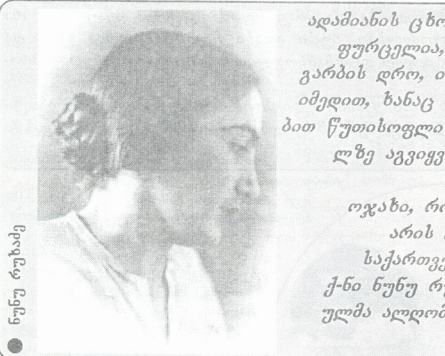 ადამიანის ცხო
ფურცელია,
გარბის დრო, ი
იმედით, ხანაც
ბით წუთისოფლი
ლზე აგვიყვ
ოჯახი, რო
არის
საქართვე
ქ-ნი ნუნუ რუ
ულმა ალღომ
ნუნუ რუხაძე